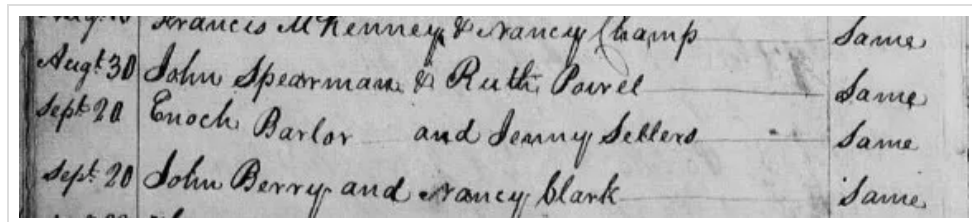 Francis McKenney & Nancy Champ Same
Augt 30 John Spearman & Ruth Powel Same
Sept 20 Enoch Barlor and Jenny Sellers Same
Sept 20 John Berry and Nancy Clark Same